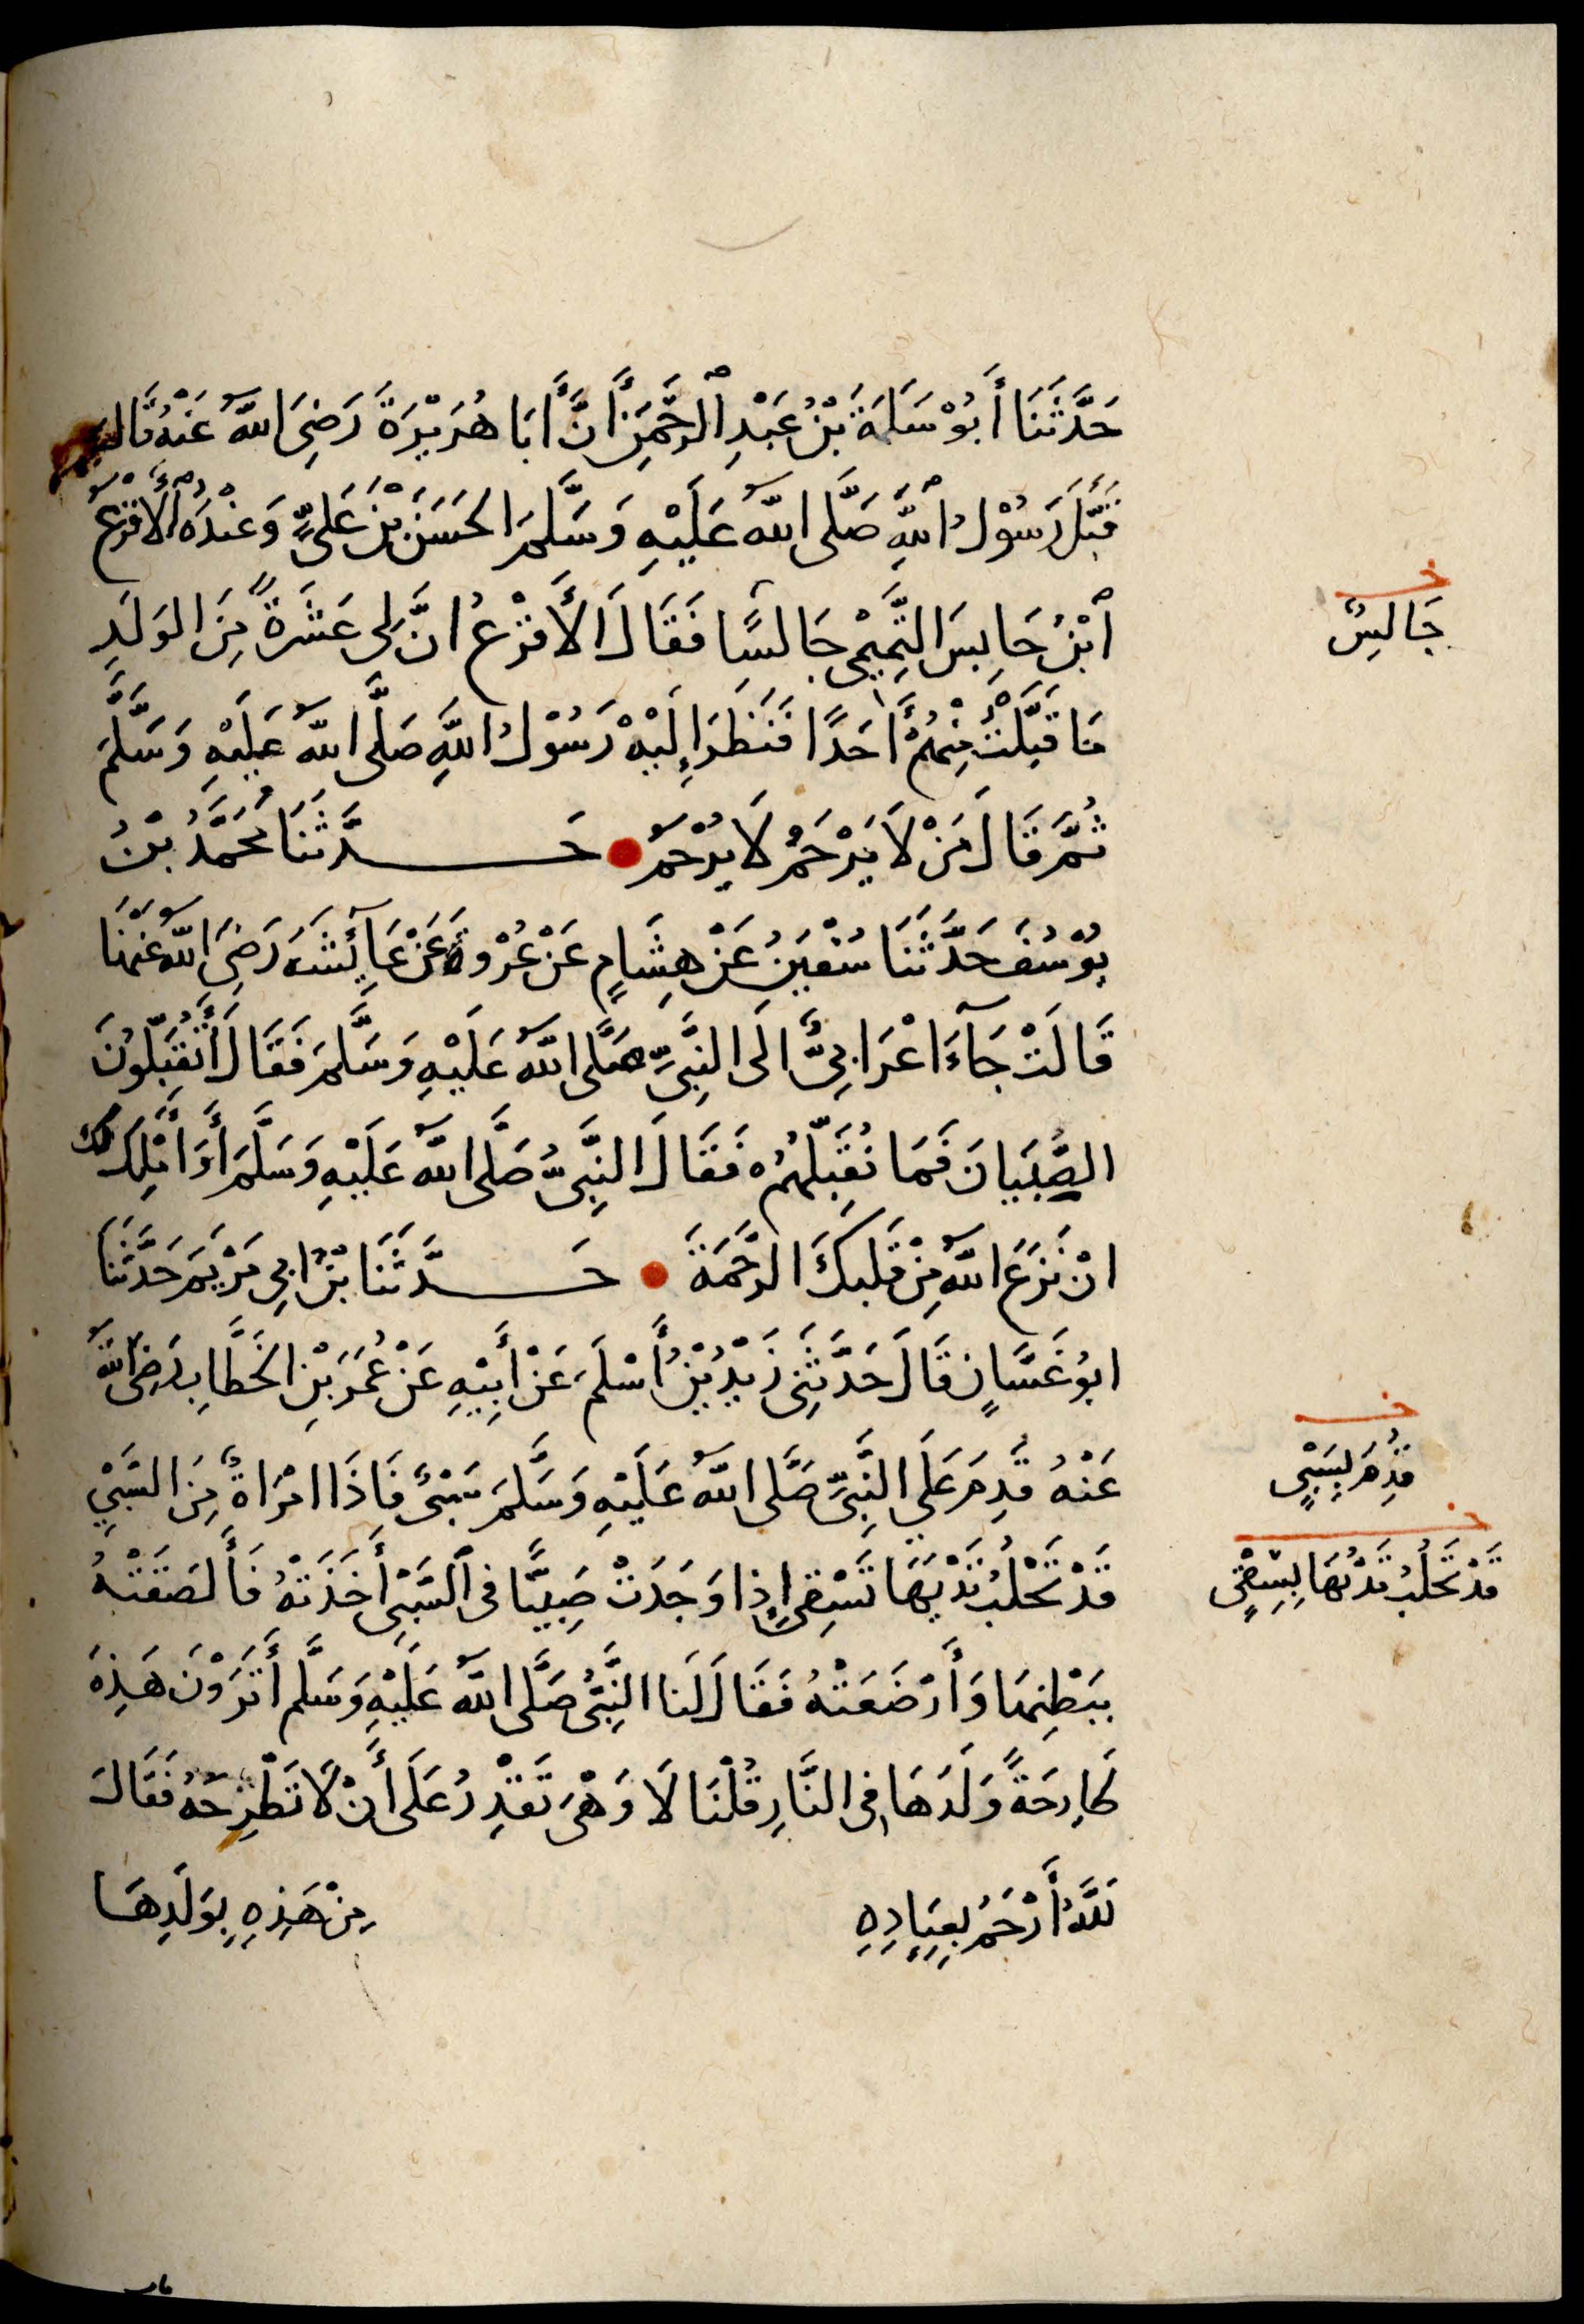 حَدَّثَنَا أَبُوْ سَلَمَةَ بْنُ عَبْدِ ٱلرَّحْمَنِ أَنَّ أَبَا هُرَيْرَةَ رَضِيَ اللَّهُ عَنْهُ قَالَ
قَبَّلَ رَسُوْلُ ٱللَّهِ صَلَّى اللَّهُ عَلَيْهِ وَسَلَّمَ الحَسَنَ بْنَ عَلِيٍّ وَعِنْدَهُ ٱلْأَقْرَعُ
ٱبْنُ حَابِسَ التَّمِيْمِيُّ جَالِسًا فَقَالَ الأَقْرَعُ انَّ لِي عَشَرَةً مِنَ الوَلَدِ
جَالِسٌ
مَا قَبَّلْتُ مِنْهُمْ أَحَدًا فَنَظَرَ إِلَيْهْ رَسُوْلُ اللَّهِ صَلَّى اللَّهُ عَلَيْهِ وَسَلَّمَ
ثُمَّ قَالَ مَنْ لَا يَرْحَمُ لَا يُرْحَمُ حَدَّثَنَا مُحَمَّدُ بْنُ
يُوْسُفَ حَدَّثَنَا سُفْيَنُ عَنْ هِشَامٍ عَنْ عُرْوَةَ عَنْ عَآئِشَةَ رَضِيَ اللَّهُ عَنْهَا
قَالَتْ جَآءَ اعْرَابِيٌّ الَى النَّبِيِّ صَلَّى اللَّهُ عَلَيْهِ وَسَلَّمَ فَقَالَ أَتُقَبِّلُونَ
الصِّبْيَانَ فَمَا نُقَبِّلُهُمْ فَقَالَ النَّبِيُّ صَلَّى اللَّهُ عَلَيْهِ وَسَلَّمَ أَوَ أَمْلِكُ لَكَ
انْ نَزَعَ اللَّهُ مِنْ قَلْبِكَ الرَّحْمَةَ حَدَّثَنَا بْنُ ابِي مَرْيَمَ حَدَّثَنَا
ابُو غَسَّانٍ قَالَ حَدَّثَنِى زَيْدُ بْنُ أَسْلَمَ عَنْ أَبِيْهِ عَنْ عُمَرَ بْنِ الخَطَّابِ رَضِيَ اللَّهُ
عَنْهُ قَدِمَ عَلَى النَّبِيِّ صَلَّى اللَّهُ عَلَيْهِ وَسَلَّمَ سَبْيٌ فَاذَا امْرَاةٌ مِنَ السَّبْيِ
قُدِمَ بِسَبْيٍ
قَدْ تَحْلُبُ ثَدْيَهَا تَسْقِي إِذَا وَجَدَتْ صَبِيًّا فِى ٱلسَّبْىِ أَخَذَتْهُ فَأَلصَقَتْهُ
قَدْ تَحَلَّبُ ثَدْيُهَا بِسَقْيٍ
بِبَطْنِهَا وَأَرْضَعَتْهُ فَقَالَ لَنَا النَّبِيُّ صَلَّى اللَّهُ عَلَيْهِ وَسَلَّمَ أَتَرَوْنَ هَذِهِ
طَارِحَةً وَلَدَهَا فِى النَّارِ قُلْنَا لَا وَهْيَ تَقْدِرُ عَلَى أَنْ لَا تَطْرَحَهُ فَقَالَ
لَلَّهُ أَرْحَمُ بِعِبَادِهِ مِنْ هَذِهِ بِوَلَدِهَا
باب